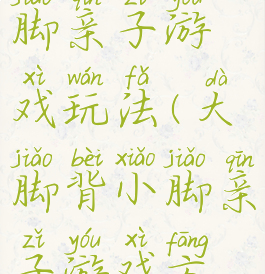 jiǎo qīn zǐ yóu
脚亲子游
xì wán fǎ dà
戏玩法(大
jiǎo bèi xiǎo jiǎo qīn
脚背小脚亲
zǐ yóu xì fāng
子游戏方